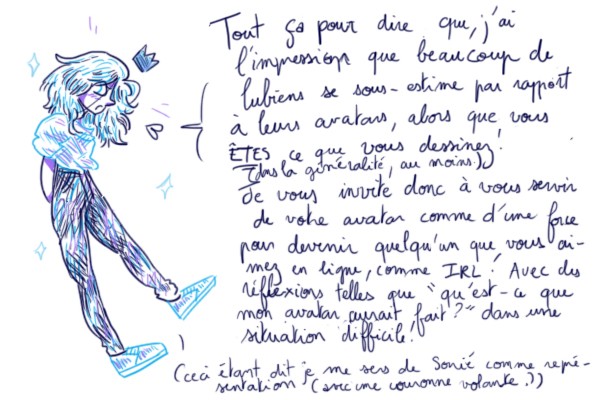 Tout ça pour dire que, j'ai
l'impression que beaucoup de
lubiens se sous-estime par rapport
à leurs avatars, alors que vous
ÊTES ce que vous dessinez!
(dans la généralité, au moins:))
Je vous invite donc à vous servir
de votre avatar comme d'une force
pour devenir quelqu'un que vous ai-
mez en ligne, comme IRL! Avec des
réflexions telles que "qu'est-ce que
mon avatar aurait fait?" dans une
situation difficile!
(ceci étant dit je me sers de Sonic comme repré-
sentation (avec une couronne volante:))